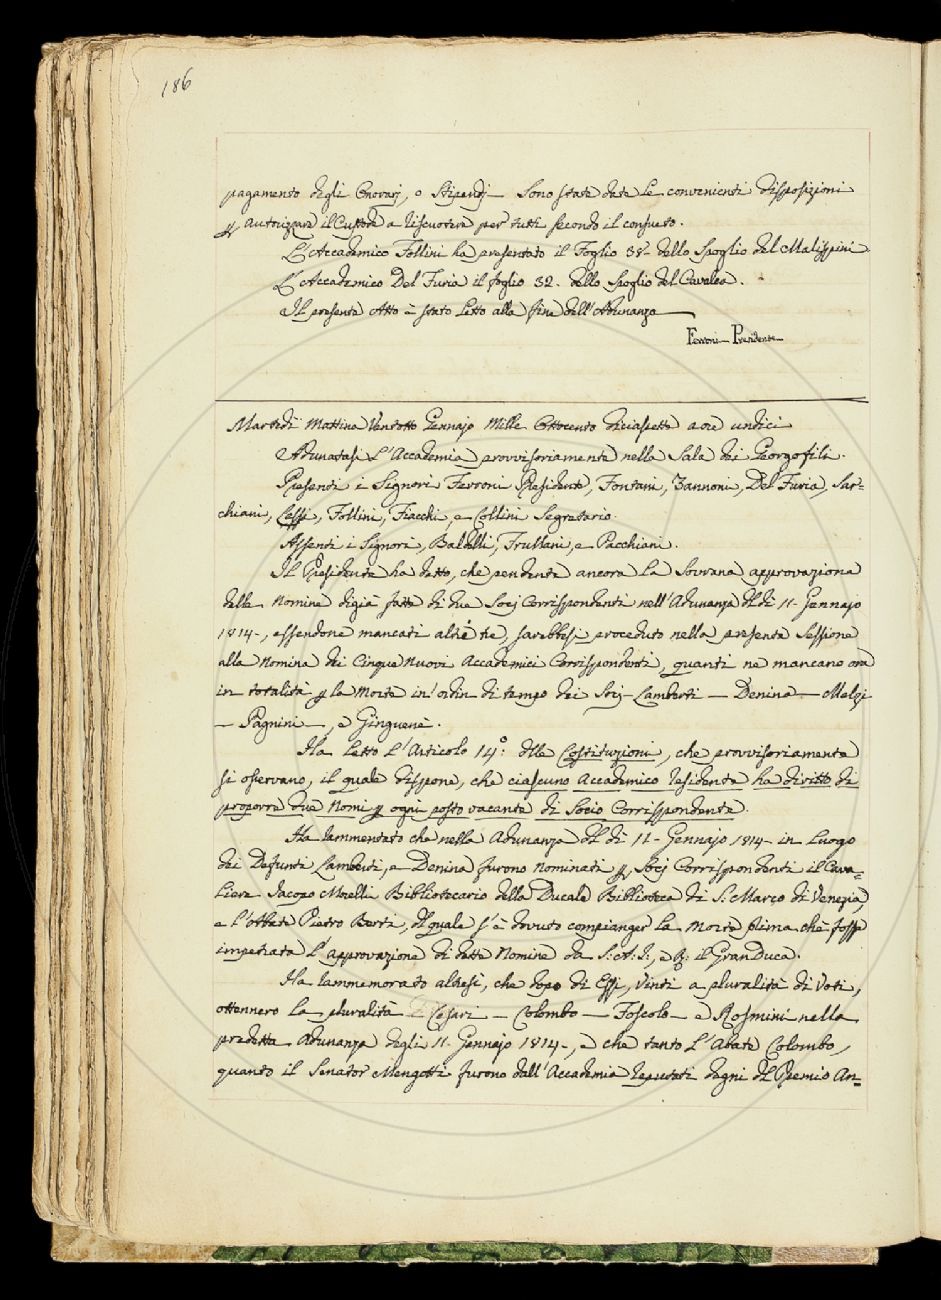 186
pagamento degli Onorarj, o Stipendj — Sono state date le convenienti disposizioni
p autorizzare il Custode a riscuotere per tutti secondo il consueto.
L'Accademico Follini ha presentato il Foglio 38. dello Spoglio del Malispini
L'Accademico Del Furia il foglio 32. dello Spoglio del Cavalca.
Il presente Atto è stato letto alla fine dell'Adunanza
Ferroni Presidente
Martedì Mattina Ventotto Gennajo Mille Ottocento diciassette a ore undici
Adunatasi L'Accademia provvisoriamente nella Sala dei Georgofili.
Presenti i Signori Ferroni Presidente, Fontani, Zannoni, Del Furia, Sar=
chiani, Lessi, Follini, Fiacchi, e Collini Segretario.
Assenti i Signori, Baldelli, Frullani, e Pacchiani.
Il Presidente ha detto, che pendente ancora la Sovrana approvazione
delle Nomine digià fatte di due Socj Corrispondenti nell'Adunanza del dì 11. Gennajo
1814-, essendone mancati altri tre, sarebbesi proceduto nella presente Sessione
alla Nomina dei Cinque Nuovi Accademici Corrispondenti, quanti ne mancano ora
in totalità p la Morte in'ordin di tempo dei Socj - Lamberti — Denina — Melzi
— Pagnini —, e Ginguenè.
Ha letto L'Articolo 14.° delle Costituzioni, che provvisoriamente
si osservano, il quale dispone, che ciascuno Accademico residente ha diritto di
proporre due Nomi p ogni posto vacante di Socio Corrispondente.
Ha rammentato che nella Adunanza del dì 11- Gennajo 1814- in luogo
dei Defunti Lamberti, e Denina furono nominati p Socj Corrispondenti il Cava=
liere Jacopo Morelli Bibliotecario della Ducale Biblioteca di S. Marco di Venezia,
e l'Abate Pietro Berti, del quale s'è dovuto compianger la Morte prima che fosse
impetrata l'approvazione di dette Nomine da S. A. I., e R. il Gran Duca.
Ha rammemorato altresì, che dopo di Essi, Vinti a pluralità di Voti,
ottennero la pluralità Cesari — Colombo — Foscolo — e Rosmini nella
predetta Adunanza degli 11. Gennajo 1814-, e che tanto L'Abate Colombo,
quanto il Senator Mengotti furono dall'Accademia reputati degni del Premio An=